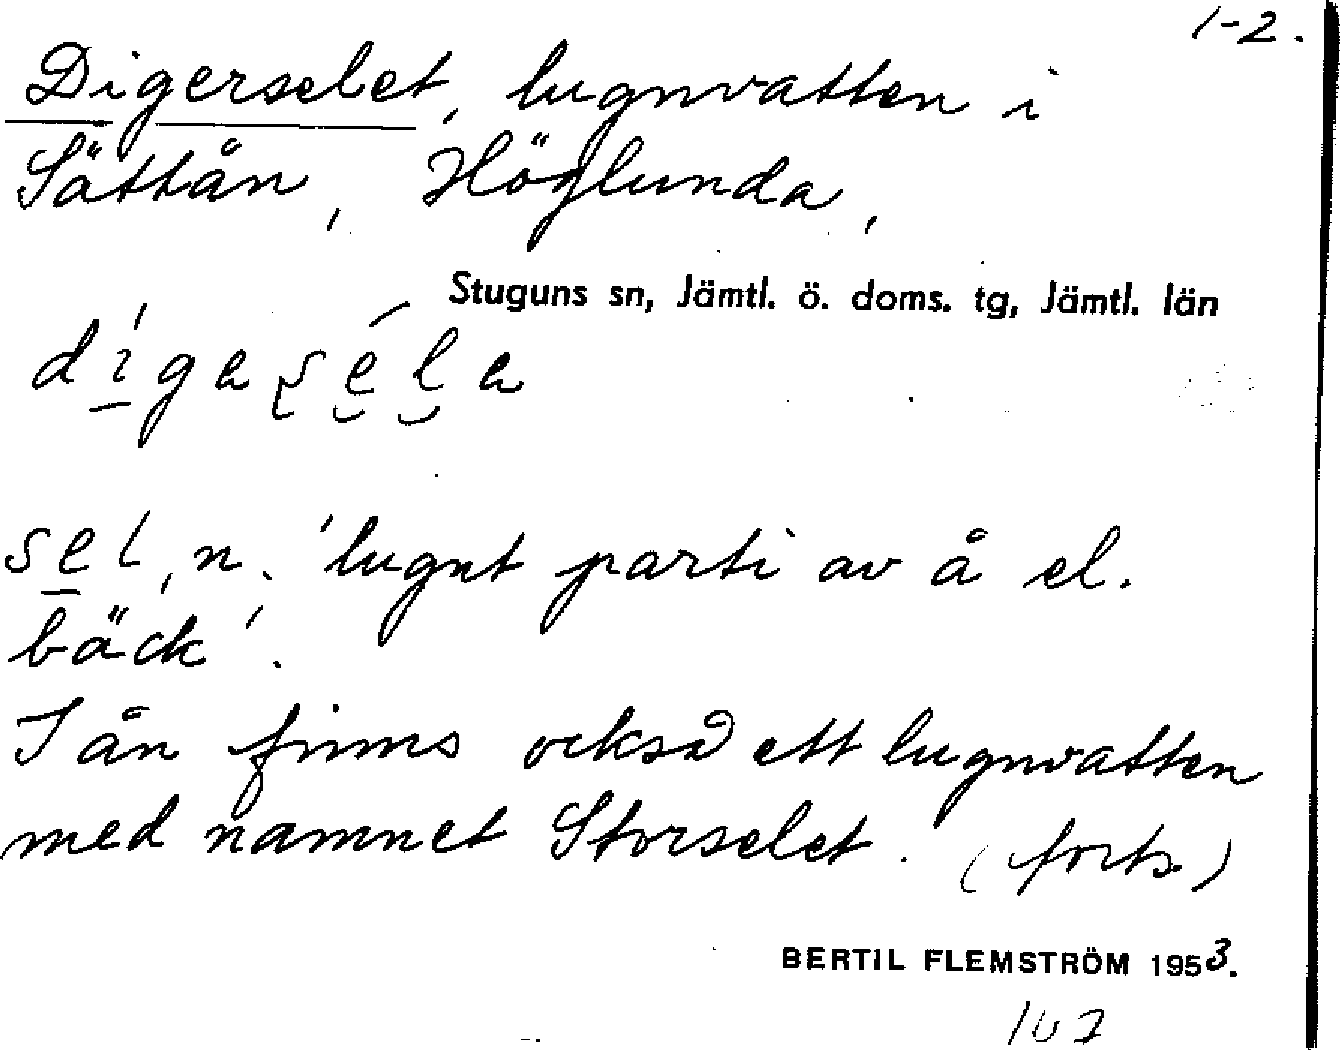 1-2.
Digerselet, lugnvatten i
Sättån, Höglunda,
Stuguns sn, Jämtl. ö. doms. tg, Jämtl. län
sel, n. 'lugnt parti av å el.
bäck'.
I ån finns också ett lugnvatten
med namnet Storselet. (forts)
BERTIL FLEMSTRÖM 1953.